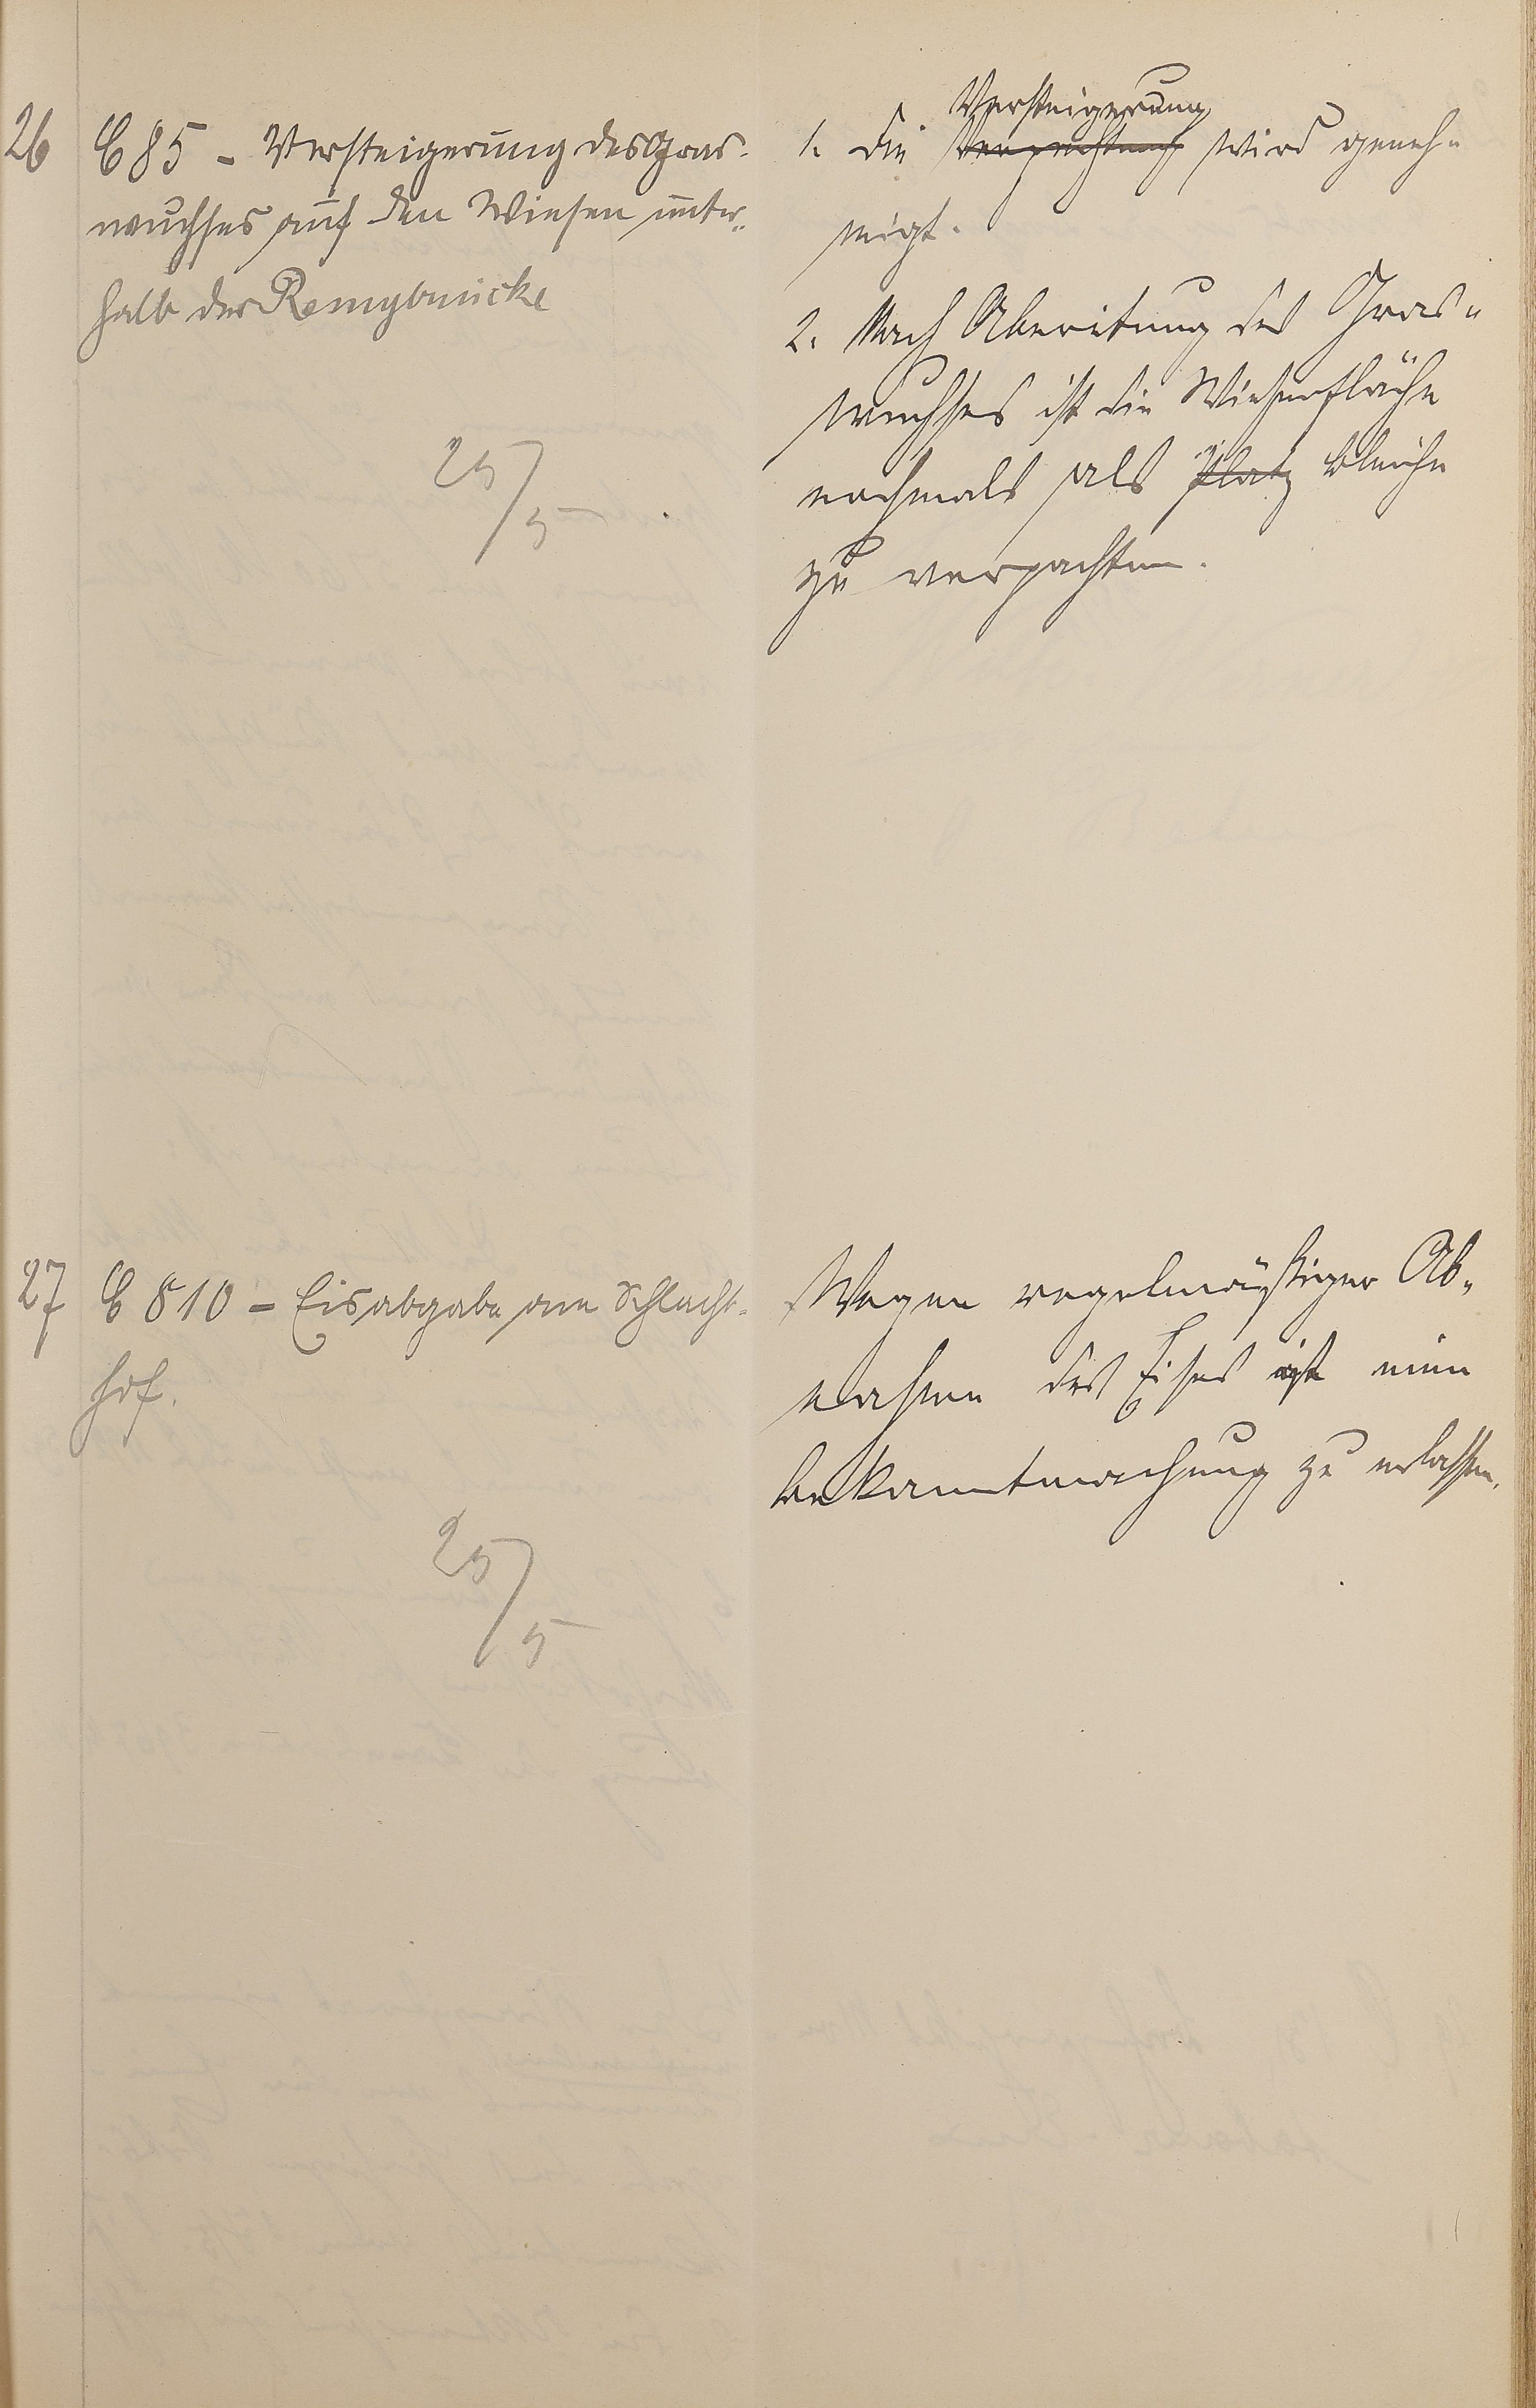 26
C 85 - Versteigerung des Gras-
wuchses auf den Wiesen unter-
halb der Remybrücke
25/5
Versteigerung
1. Die Verpachtung wird geneh-
migt.
2. Nach Aberntung des Gras-
wuchses ist die Wiesenfläche
nochmals als Platz Bleiche
zu verpachten.
27
C 810 - Eisabgabe am Schlacht-
hof.
25/5
Wegen regelmäßiger Ab-
nahme des Eises ist eine
Bekanntmachung zu erlassen.